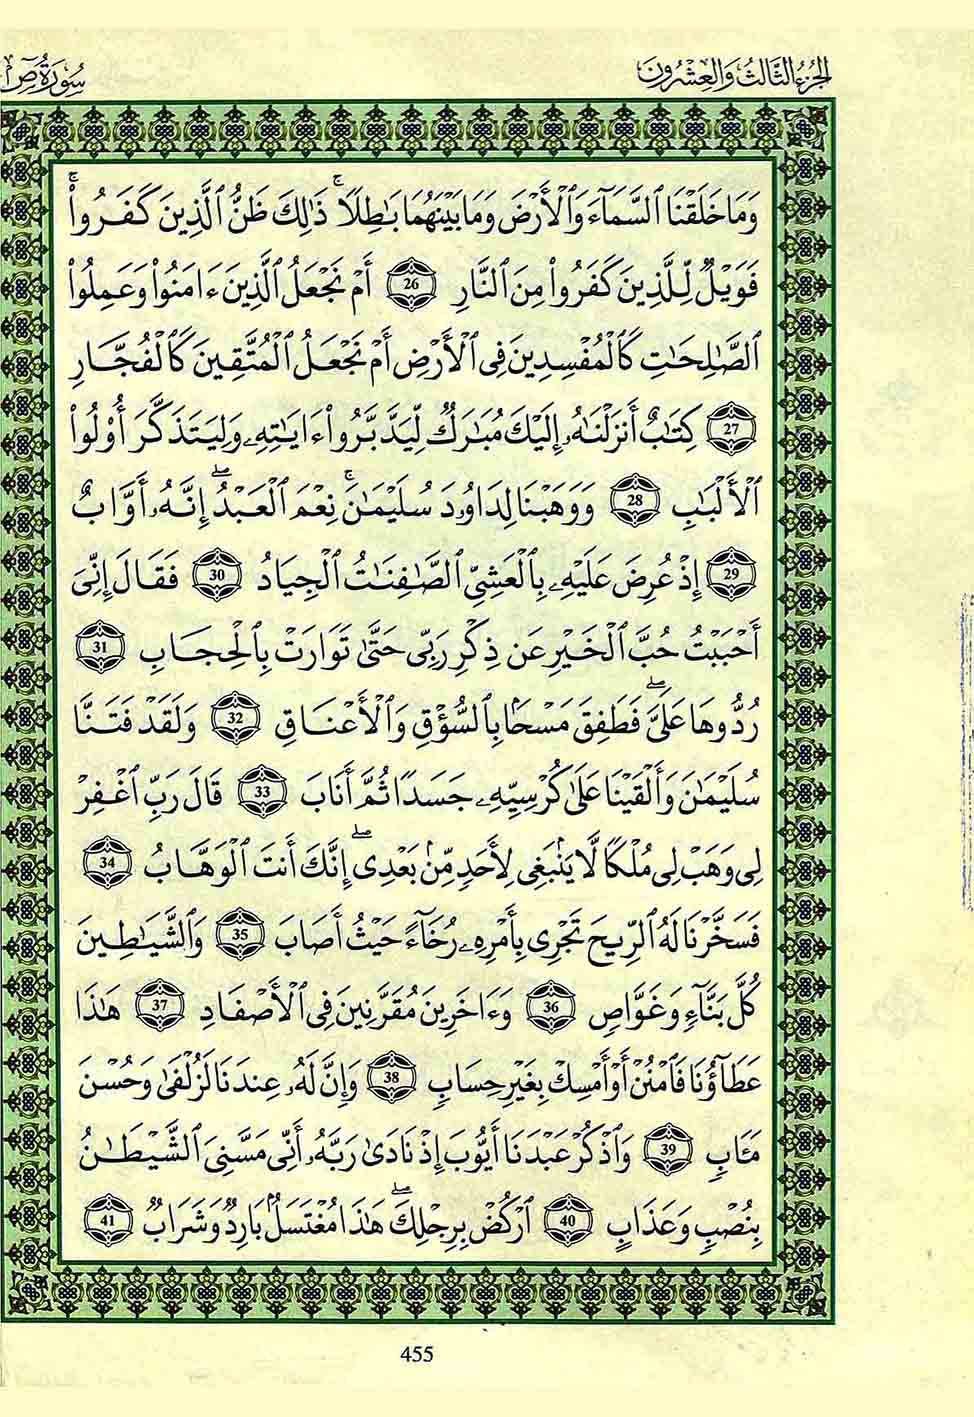 الجزء الثالث والعشرون
سورة ص
وَمَا خَلَقْنَا ٱلسَّمَآءَ وَٱلْأَرْضَ وَمَا بَيْنَهُمَا بَٰطِلًا ۚ ذَٰلِكَ ظَنُّ ٱلَّذِينَ كَفَرُوا۟ ۚ
فَوَيْلٌ لِّلَّذِينَ كَفَرُوا۟ مِنَ ٱلنَّارِ 26 أَمْ نَجْعَلُ ٱلَّذِينَ ءَامَنُوا۟ وَعَمِلُوا۟
ٱلصَّٰلِحَٰتِ كَٱلْمُفْسِدِينَ فِى ٱلْأَرْضِ أَمْ نَجْعَلُ ٱلْمُتَّقِينَ كَٱلْفُجَّارِ
27 كِتَٰبٌ أَنزَلْنَٰهُ إِلَيْكَ مُبَٰرَكٌ لِّيَدَّبَّرُوٓا۟ ءَايَٰتِهِۦ وَلِيَتَذَكَّرَ أُو۟لُوا۟
ٱلْأَلْبَٰبِ 28 وَوَهَبْنَا لِدَاوُۥدَ سُلَيْمَٰنَ ۚ نِعْمَ ٱلْعَبْدُ ۖ إِنَّهُۥٓ أَوَّابٌ
29 إِذْ عُرِضَ عَلَيْهِ بِٱلْعَشِىِّ ٱلصَّٰفِنَٰتُ ٱلْجِيَادُ 30 فَقَالَ إِنِّىٓ
أَحْبَبْتُ حُبَّ ٱلْخَيْرِ عَن ذِكْرِ رَبِّى حَتَّىٰ تَوَارَتْ بِٱلْحِجَابِ 31
رُدُّوهَا عَلَىَّ ۖ فَطَفِقَ مَسْحًۢا بِٱلسُّؤْقِ وَٱلْأَعْنَاقِ 32 وَلَقَدْ فَتَنَّا
سُلَيْمَٰنَ وَأَلْقَيْنَا عَلَىٰ كُرْسِيِّهِۦ جَسَدًا ثُمَّ أَنَابَ 33 قَالَ رَبِّ ٱغْفِرْ
لِى وَهَبْ لِى مُلْكًا لَّا يَنۢبَغِى لِأَحَدٍ مِّنۢ بَعْدِىٓ ۖ إِنَّكَ أَنتَ ٱلْوَهَّابُ 34
فَسَخَّرْنَا لَهُ ٱلرِّيحَ تَجْرِى بِأَمْرِهِۦ رُخَآءً حَيْثُ أَصَابَ 35 وَٱلشَّيَٰطِينَ
كُلَّ بَنَّآءٍ وَغَوَّاصٍ 36 وَءَاخَرِينَ مُقَرَّنِينَ فِى ٱلْأَصْفَادِ 37 هَٰذَا
عَطَآؤُنَا فَٱمْنُنْ أَوْ أَمْسِكْ بِغَيْرِ حِسَابٍ 38 وَإِنَّ لَهُۥ عِندَنَا لَزُلْفَىٰ وَحُسْنَ
مَـَٔابٍ 39 وَٱذْكُرْ عَبْدَنَآ أَيُّوبَ إِذْ نَادَىٰ رَبَّهُۥٓ أَنِّى مَسَّنِىَ ٱلشَّيْطَٰنُ
بِنُصْبٍ وَعَذَابٍ 40 ٱرْكُضْ بِرِجْلِكَ ۖ هَٰذَا مُغْتَسَلٌۢ بَارِدٌ وَشَرَابٌ 41
455